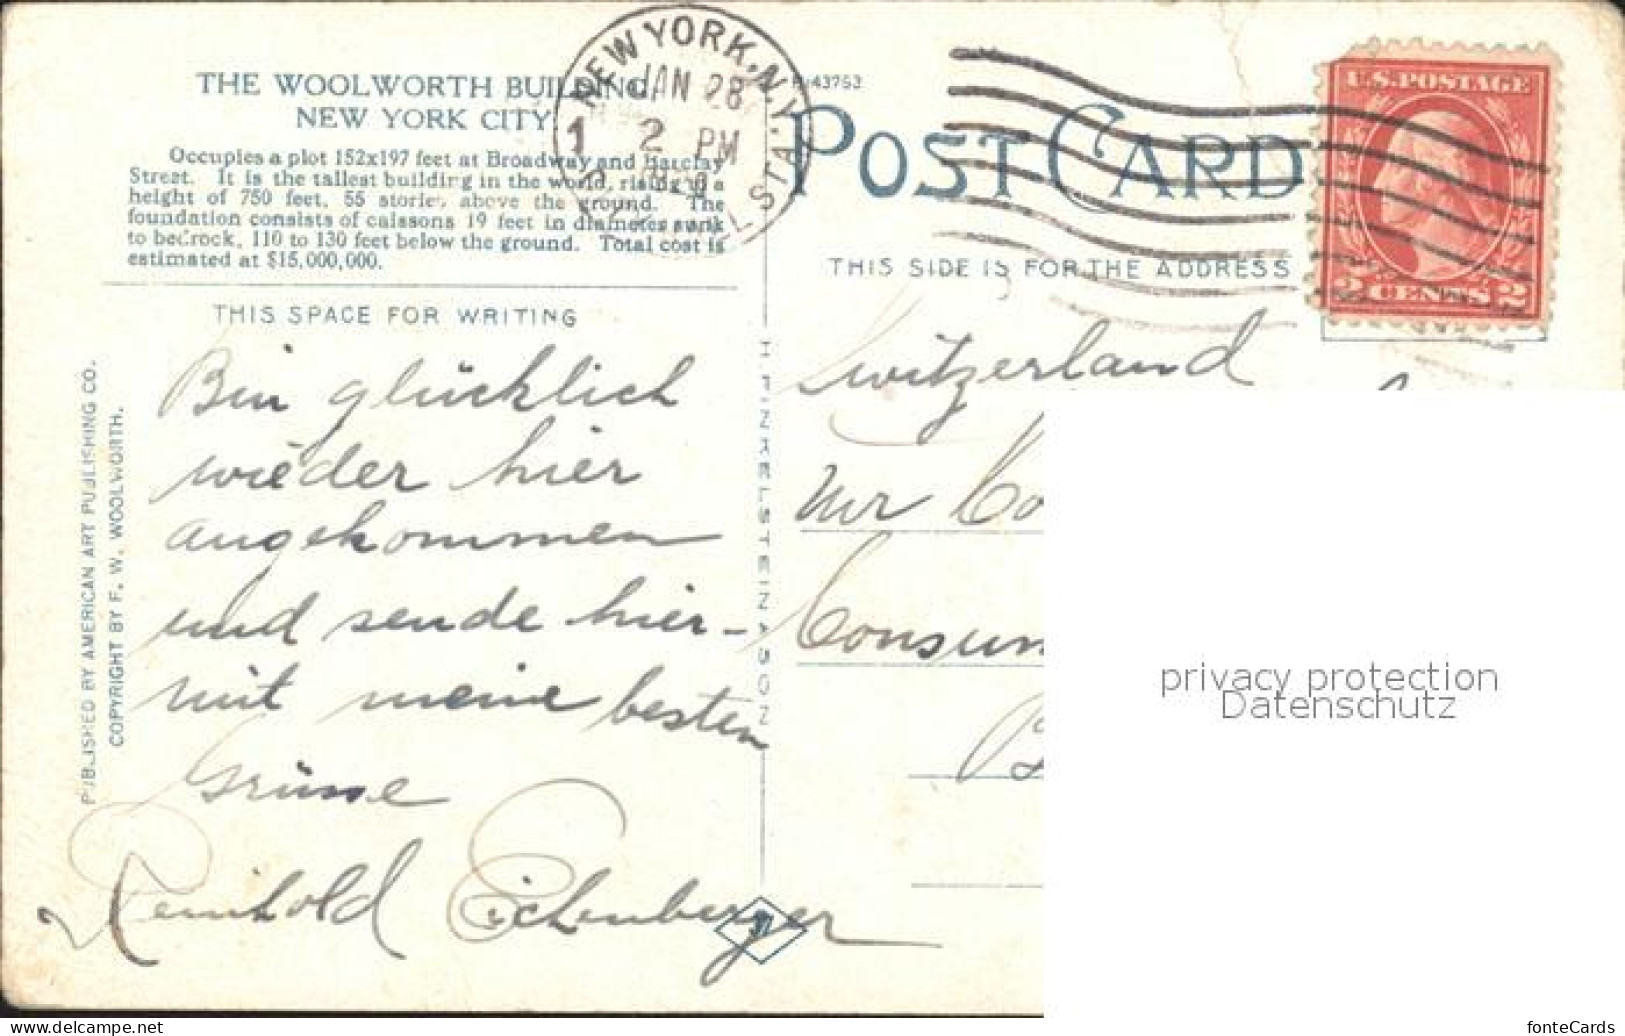 THE WOOLWORTH BUILDING,
NEW YORK CITY
Occuples a plot 152x197 feet at Broadway and Barclay
Street. It is the tallest building in the world, rising to a
height of 750 feet, 55 stories above the ground. The
foundation consists of caissons 19 feet in diameter sunk
to bedrock, 110 to 130 feet below the ground. Total cost is
estimated at $15,000,000.
NEW YORK, N.Y.
JAN 28
1 2 PM
STA.
R-43753
POST CARD
U.S. POSTAGE
2 CENTS 2
THIS SIDE IS FOR THE ADDRESS
THIS SPACE FOR WRITING
Bin glücklich
wieder hier
angekommen
und sende hier-
mit meine besten
Grüsse
Reinhold Eichenberger
Switzerland
Mr Co
Consum
PUBLISHED BY AMERICAN ART PUBLISHING CO.
COPYRIGHT BY F. W. WOOLWORTH.
H. FINKELSTEIN & SON
privacy protection
Datenschutz
fonteCards